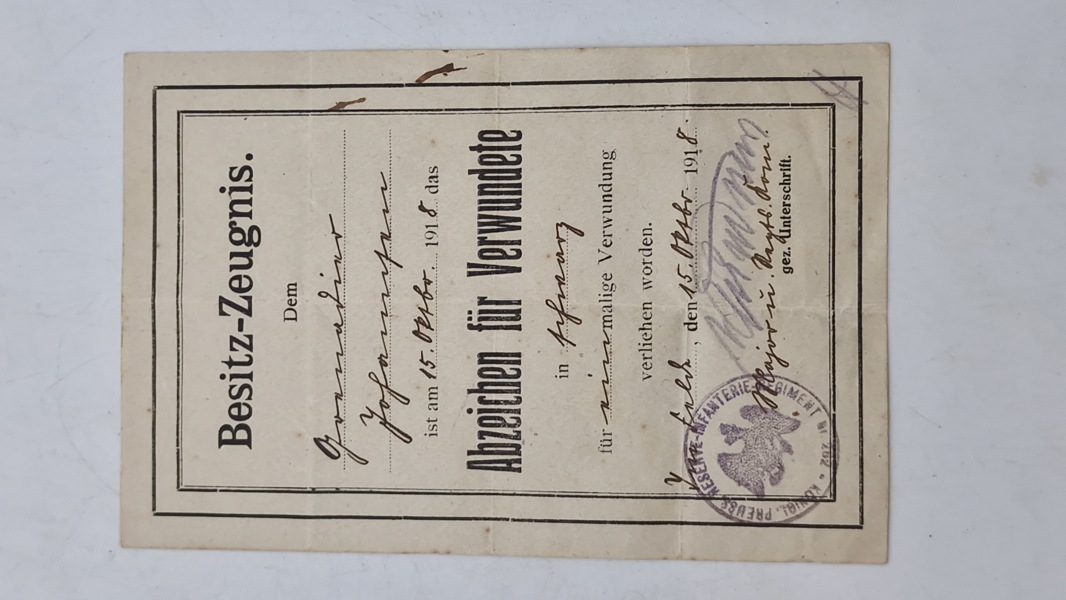 Besitz-Zeugnis.
Dem
Grenadier
Johannsen
ist am 15. Oktbr. 1918 das
Abzeichen für Verwundete
in schwarz
für einmalige Verwundung
verliehen worden.
Im Felde, den 15. Oktbr. 1918.
Major u. Regts. Kom.
gez. Unterschrift.
KÖNIGL. PREUSS. RESERVE-INFANTERIE-REGIMENT Nr 202